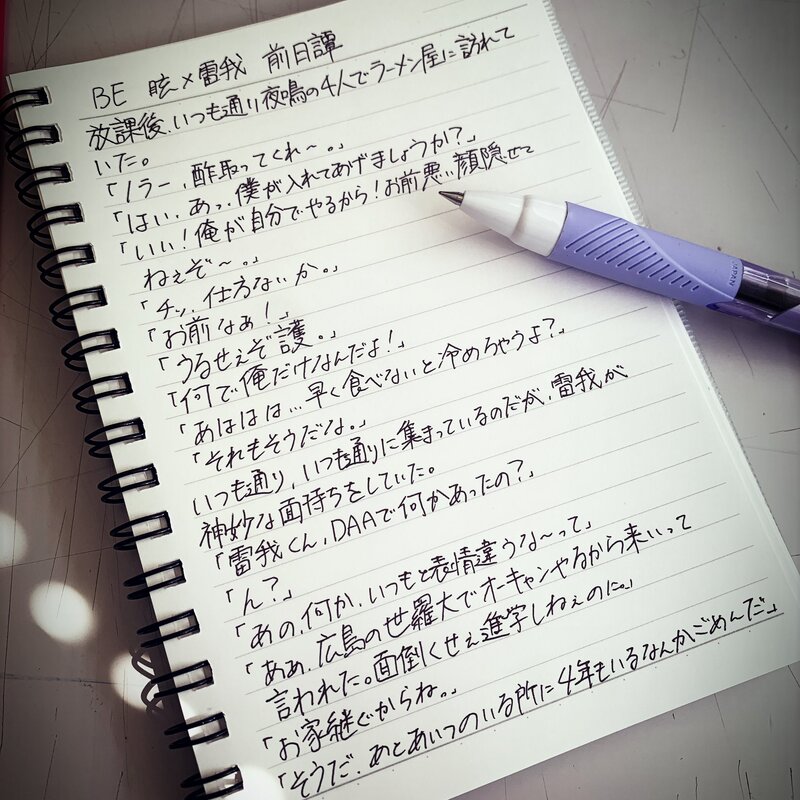 BE 眩×雷我 前日譚
放課後、いつも通り夜鳴の4人でラーメン屋に訪れて
いた。
「ノラー、酢取ってくれ〜。」
「はい、あっ、僕が入れてあげましょうか?」
「いい!俺が自分でやるから!お前悪い顔隠せて
ねぇぞ〜。」
「チッ、仕方ないか。」
「お前なぁ!」
「うるせぇぞ護。」
「何で俺だけなんだよ!」
「あははは…早く食べないと冷めちゃうよ?」
「それもそうだな。」
いつも通り、いつも通りに集まっているのだが、雷我が
神妙な面持ちをしていた。
「雷我くん、DAAで何かあったの?」
「ん?」
「あの、何か、いつもと表情違うな〜って」
「ああ、広島の世羅大でオーキャンやるから来いって
言われた。面倒くせぇ進学しねぇのに。」
「お家継ぐからね。」
「そうだ、あとあいつのいる所に4年もいるなんかごめんだ」
JAPAN